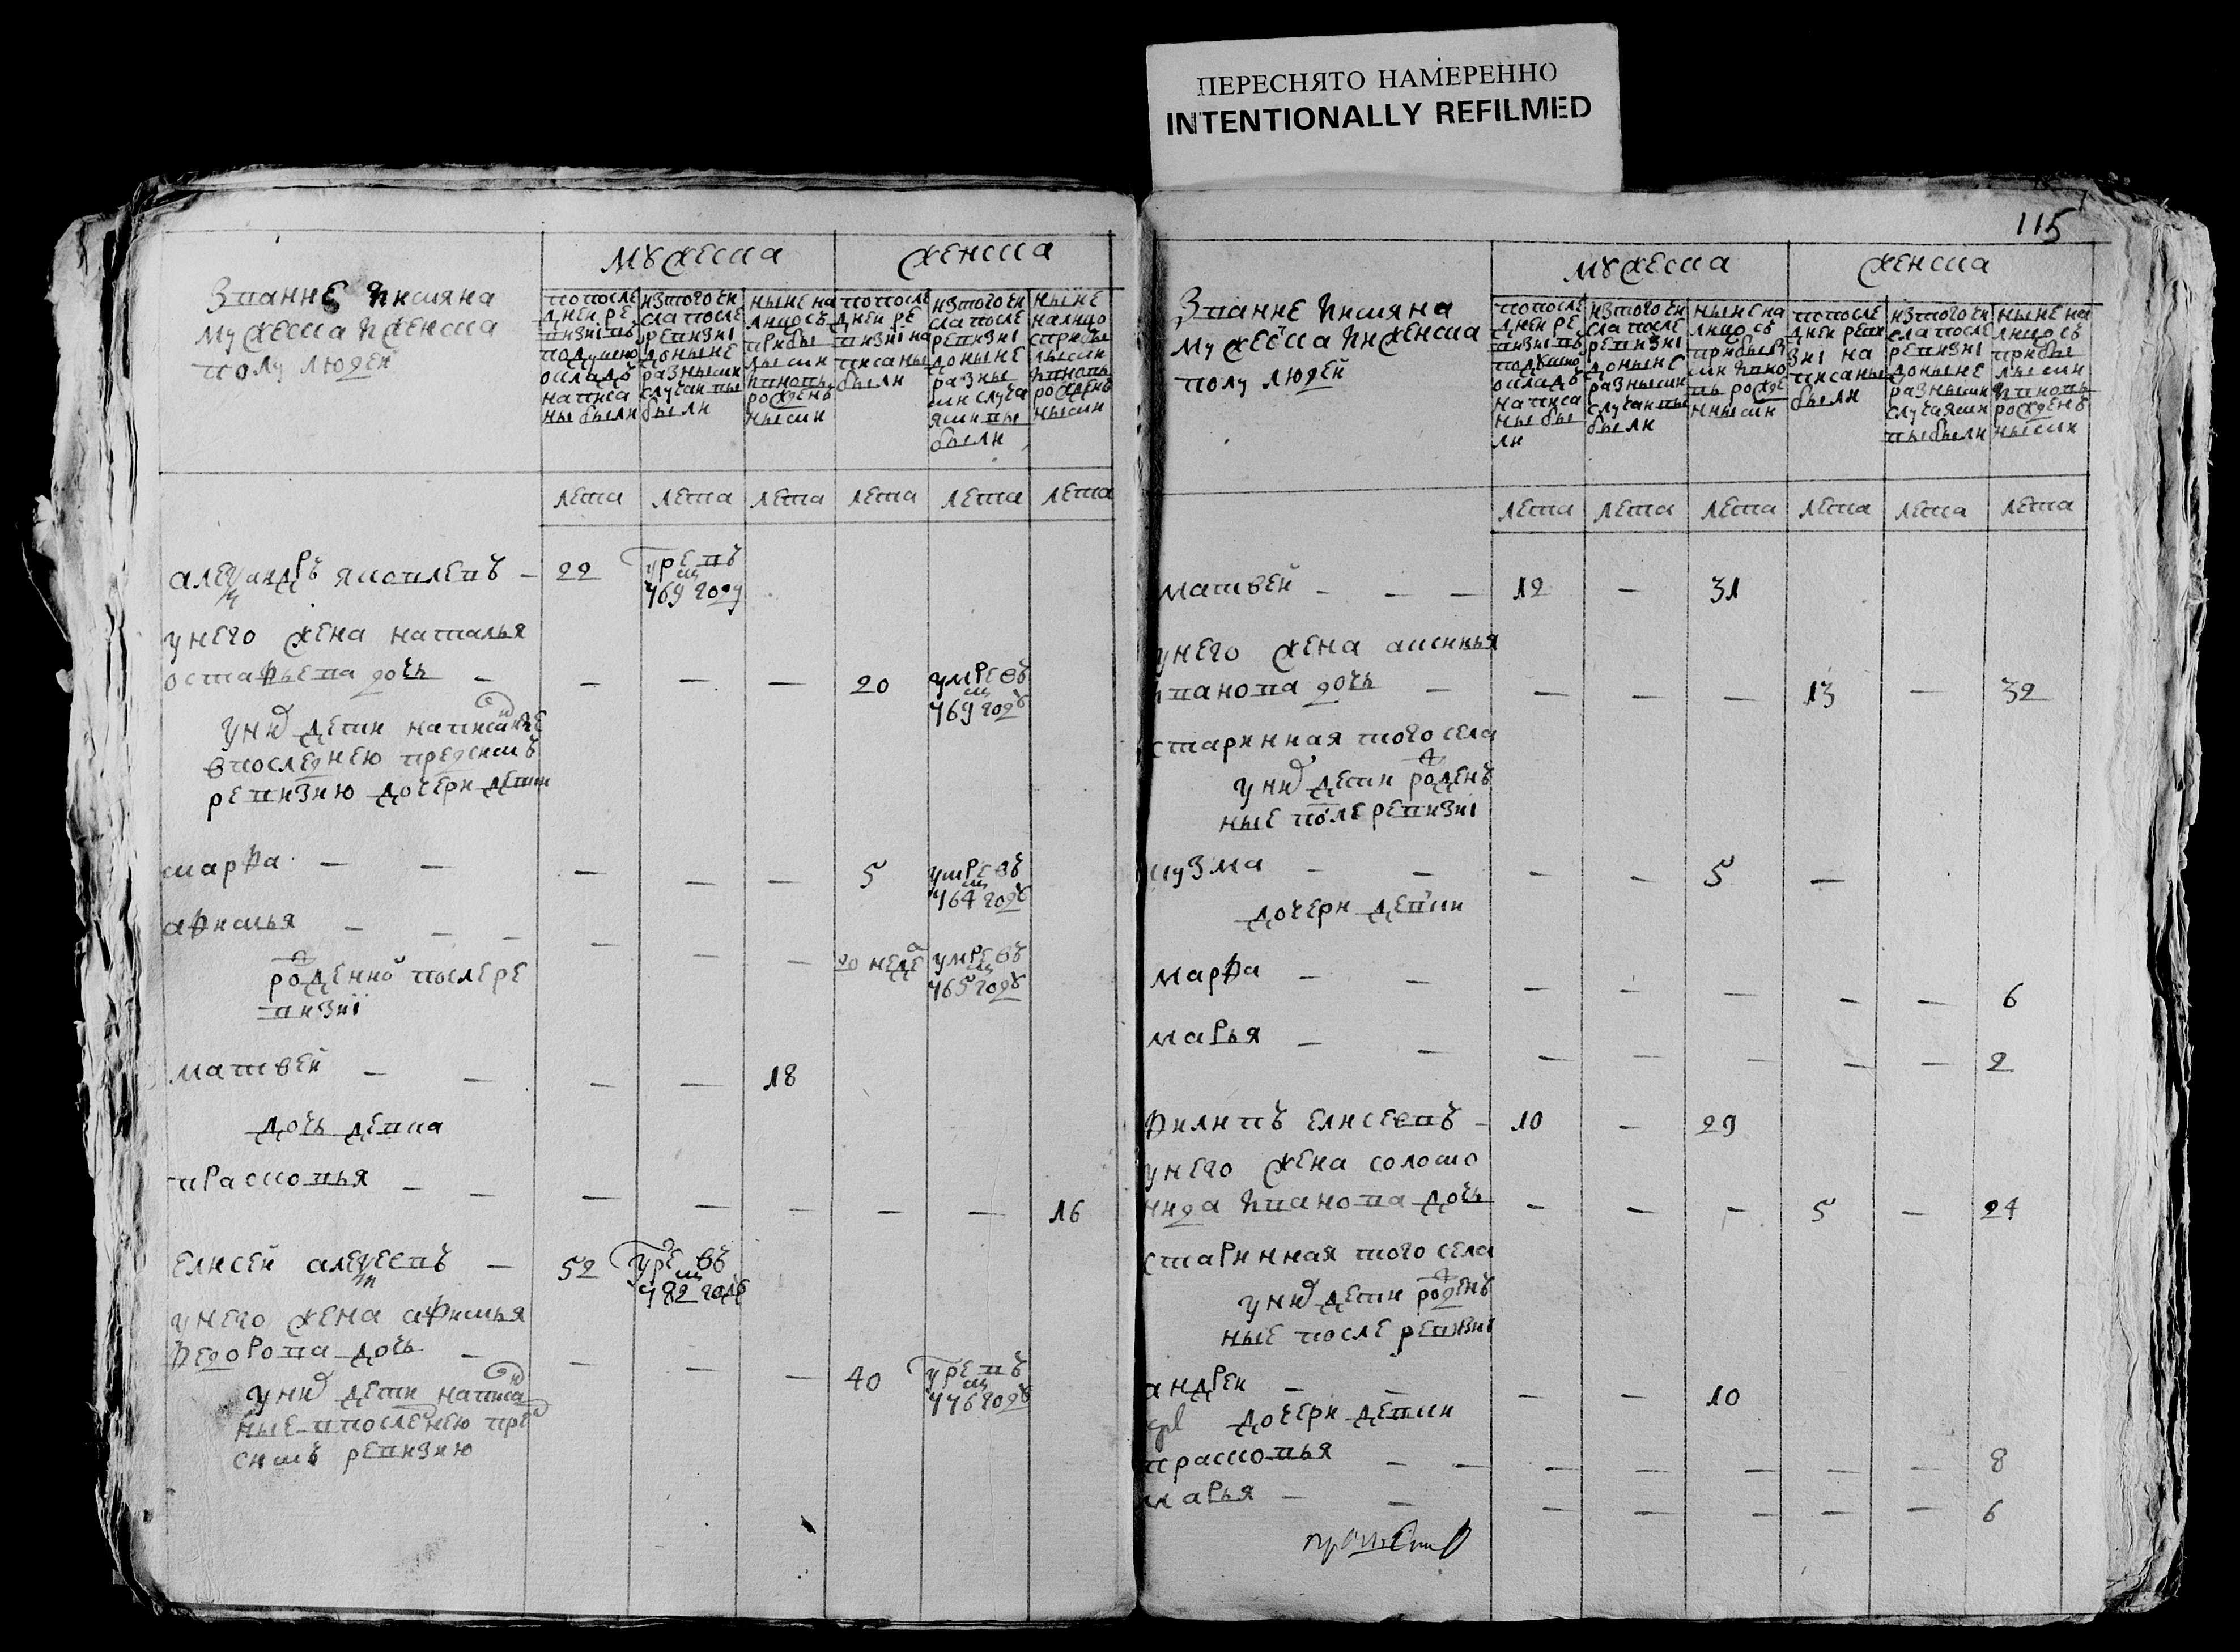 ПЕРЕСНЯТО НАМЕРЕННО
INTENTIONALLY REFILMED
115
Звание и имяна
мужеска и женска
полу людей
мужеска
женска
по после
дней ре
визіи въ
подушно
окладъ
написа
ны были
изтого чи
сла после
ревизіи
доныне
разными
случаи вы
были
ныне на
лицо съ
прибы
лыми
и вновь
рожден
ными
по после
дней ре
визіи на
писаны
были
изтого чи
сла после
ревизіи
доныне
разны
ми случа
ями вы
были
ныне
налицо
сприбы
лыми
и вновь
рожден
ными
лета лета лета лета лета лета
Александръ яковлевъ - 22 умре въ
769 году
унего жена наталья
остафьева дочь - - - - 20 умре въ
769 годѣ
уних дети написаные
впоследнею пред симъ
ревизию дочери девки
марфа - - - - - 5 умре въ
764 годѣ
афимья - - - - - - 20 недел умре въ
765 годѣ
рожденной послере
визиі
матвей - - - - 18
дочь девка
прасковья - - - - - - - 16
елисей алексеевъ - 52 умре въ
782 годѣ
унего жена афимья
федорова дочь - - - - 40 умре въ
776 годѣ
уних дети написа
ные впоследнею пред
симъ ревизию
Звание имяна
мужеска и женска
полу людей
мужеска
женска
по после
дней ре
визіи въ
подушно
окладъ
написа
ны бы
ли
изтого чи
сла после
ревизіи
доныне
разными
случаи вы
были
ныне на
лицо съ
прибылы
ми и вно
вь рожде
нными
по после
дней реви
зіи на
писаны
были
изтого чи
сла после
ревизіи
доныне
разными
случаями
выбыли
ныне на
лицо съ
прибы
лыми
и вновь
рожден
ными
лета лета лета лета лета лета
матвей - - - 12 - 31
унего жена аксинья
иванова дочь - - - - 13 - 32
старинная того села
уних дети рожден
ные после ревизиі
кузма - - - - 5 -
дочери девки
марфа - - - - - - - 6
марья - - - - - - - 2
филипъ елисеевъ - 10 - 29
унего жена соломо
нида иванова дочь - - - 5 - 24
старинная того села
уних дети рожден
ные после ревизиі
андрей - - - - 10
дочери девки
прасковья - - - - - - - 8
марья - - - - - - - 6